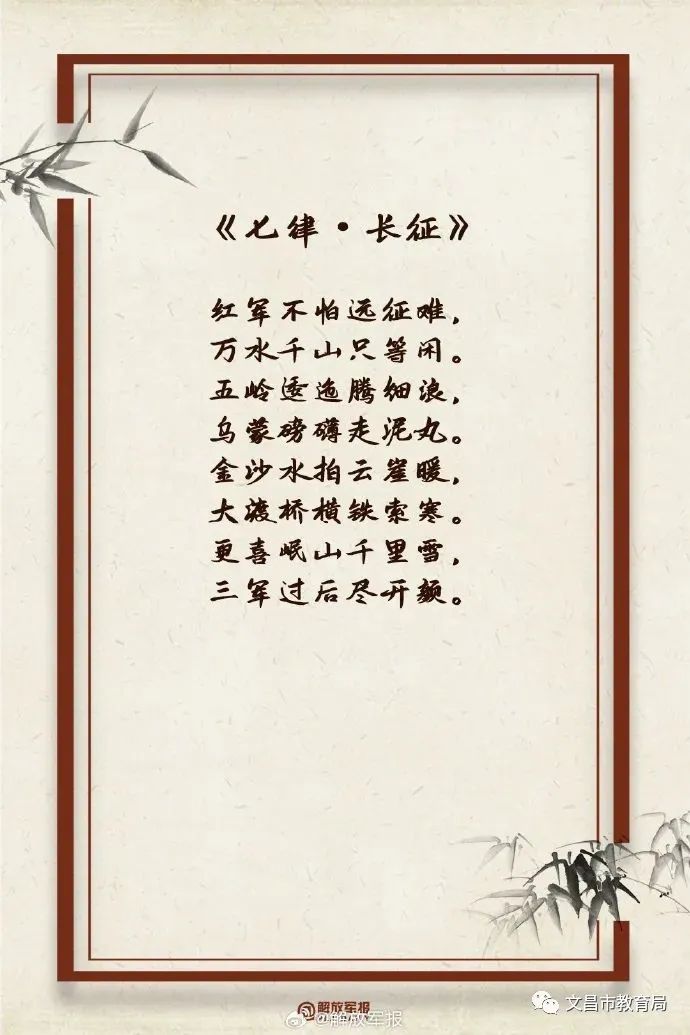 《七律·长征》
红军不怕远征难，
万水千山只等闲。
五岭逶迤腾细浪，
乌蒙磅礴走泥丸。
金沙水拍云崖暖，
大渡桥横铁索寒。
更喜岷山千里雪，
三军过后尽开颜。
@解放军报
@解放军报
文昌市教育局